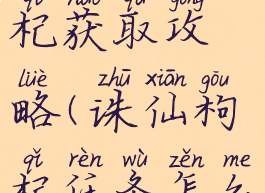 qǐ huò qǔ gōng
杞获取攻
lüè zhū xiān gōu
略(诛仙枸
qǐ rèn wù zěn me
杞任务怎么